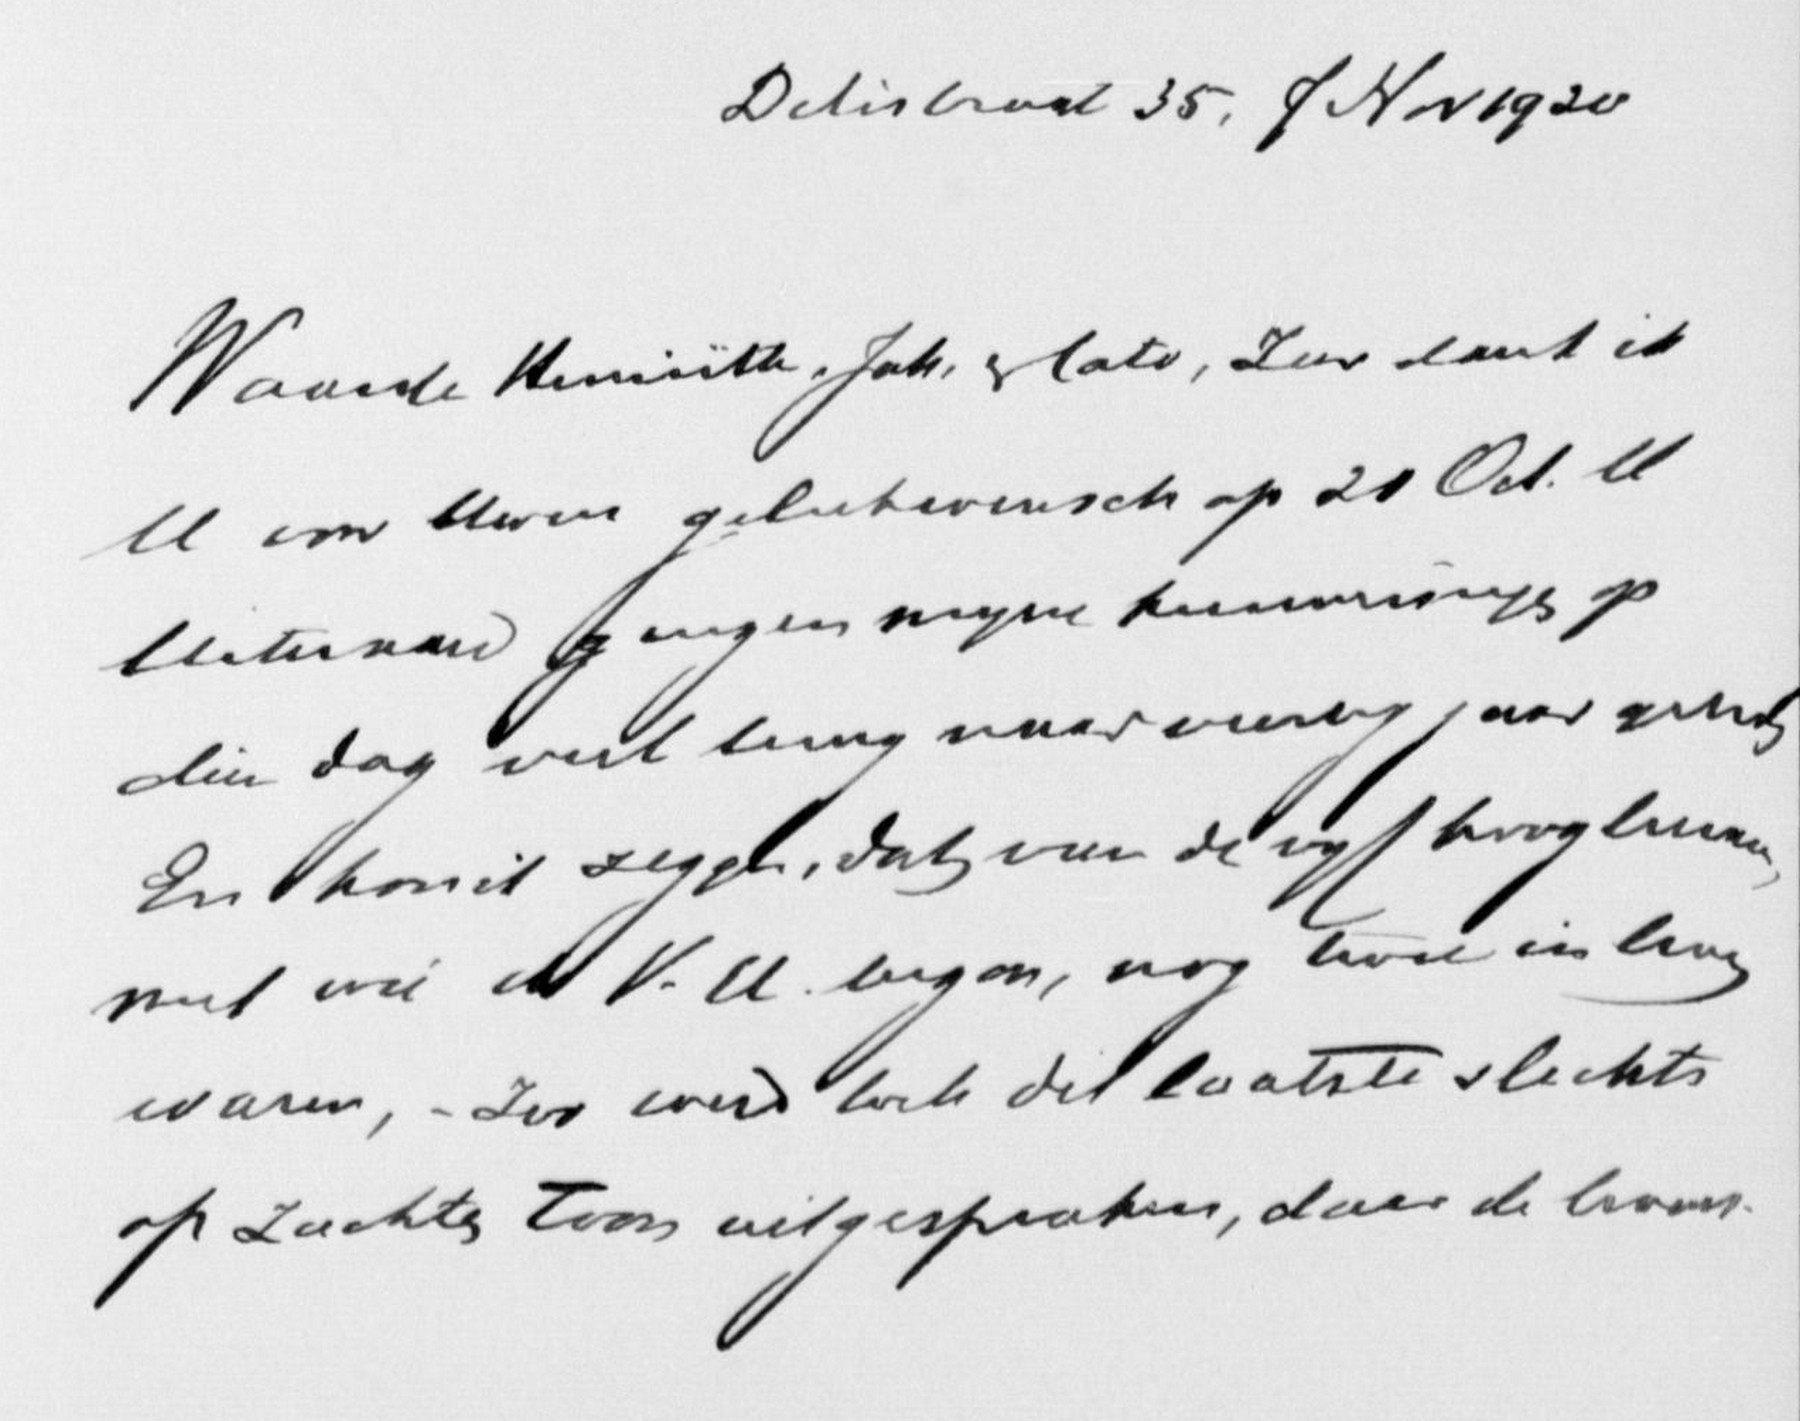 Delistraat 35, 7 Nov 1920
Waarde Henriëtte, Joh. & Cato, Zeer dank ik
U voor Uwen gelukwensch op 20 Oct. U
Uiteraard gingen mijne herinneringen op
dien dag veel terug naar veertig jaar geleden
En kon ik zeggen, dat van de vijf hoogleeraren,
met wie de V. U. begon, nog twee in leven
waren, - Zoo werd toch dit laatste slechts
op zachten toon uitgesproken, daar de